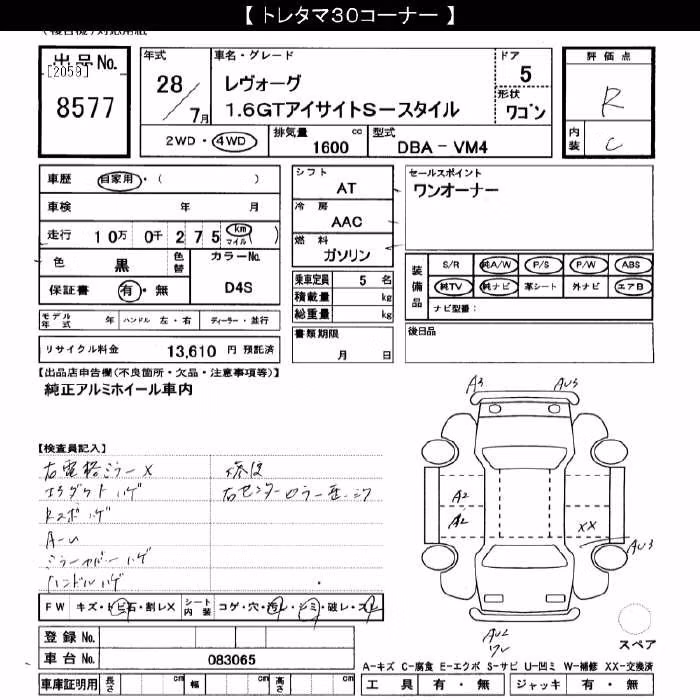 【 トレタマ30コーナー 】
(複合機)対応用紙
出品No.
[2059]
8577
年式
28/7月
車名・グレード
レヴォーグ
1.6GTアイサイトS-スタイル
ドア
5
形状
ワゴン
評価点
R
内装
C
2WD ・ 4WD
排気量
1600 cc
型式
DBA - VM4
車歴 自家用・( )
車検 年 月
走行 10万 0千 275 (km マイル)
色 黒 色替
カラーNo.
D4S
保証書 有・無
シフト
AT
冷房
AAC
燃料
ガソリン
乗車定員 5 名
積載量 kg
総重量 kg
セールスポイント
ワンオーナー
装備品
S/R 純A/W P/S P/W ABS
純TV 純ナビ 革シート 外ナビ エアB
ナビ型番:
モデル年式 年 ハンドル 左・右 ディーラー・並行
リサイクル料金 13,610 円 預託済
書類期限
月 日
後日品
【出品店申告欄(不良箇所・欠品・注意事項等)】
純正アルミホイール車内
【検査員記入】
右電格ミラーX
右センターピラー
エアダクトハゲ
RスポハゲA-U
ミラーカバーハゲ
ハンドルハゲ
A3
AU3
A2
A2
XX
AU3
AU2
W
FW キズ・トビ石・割レX シート内装 コゲ・穴・汚レ・シミ・破レ・スレ
登録No.
車台No. 083065
スペア
A-キズ C-腐食 E-エクボ S-サビ U-凹ミ W-補修 XX-交換済
車庫証明用 長さ cm 幅 cm 高さ cm
工具 有・無 ジャッキ 有・無